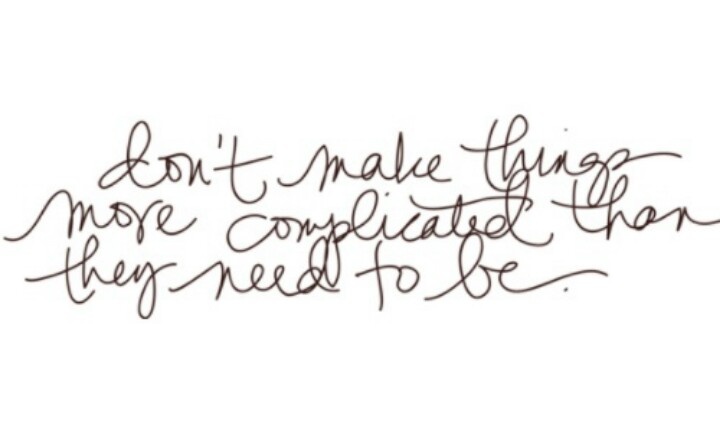 don't make things
more complicated than
they need to be.